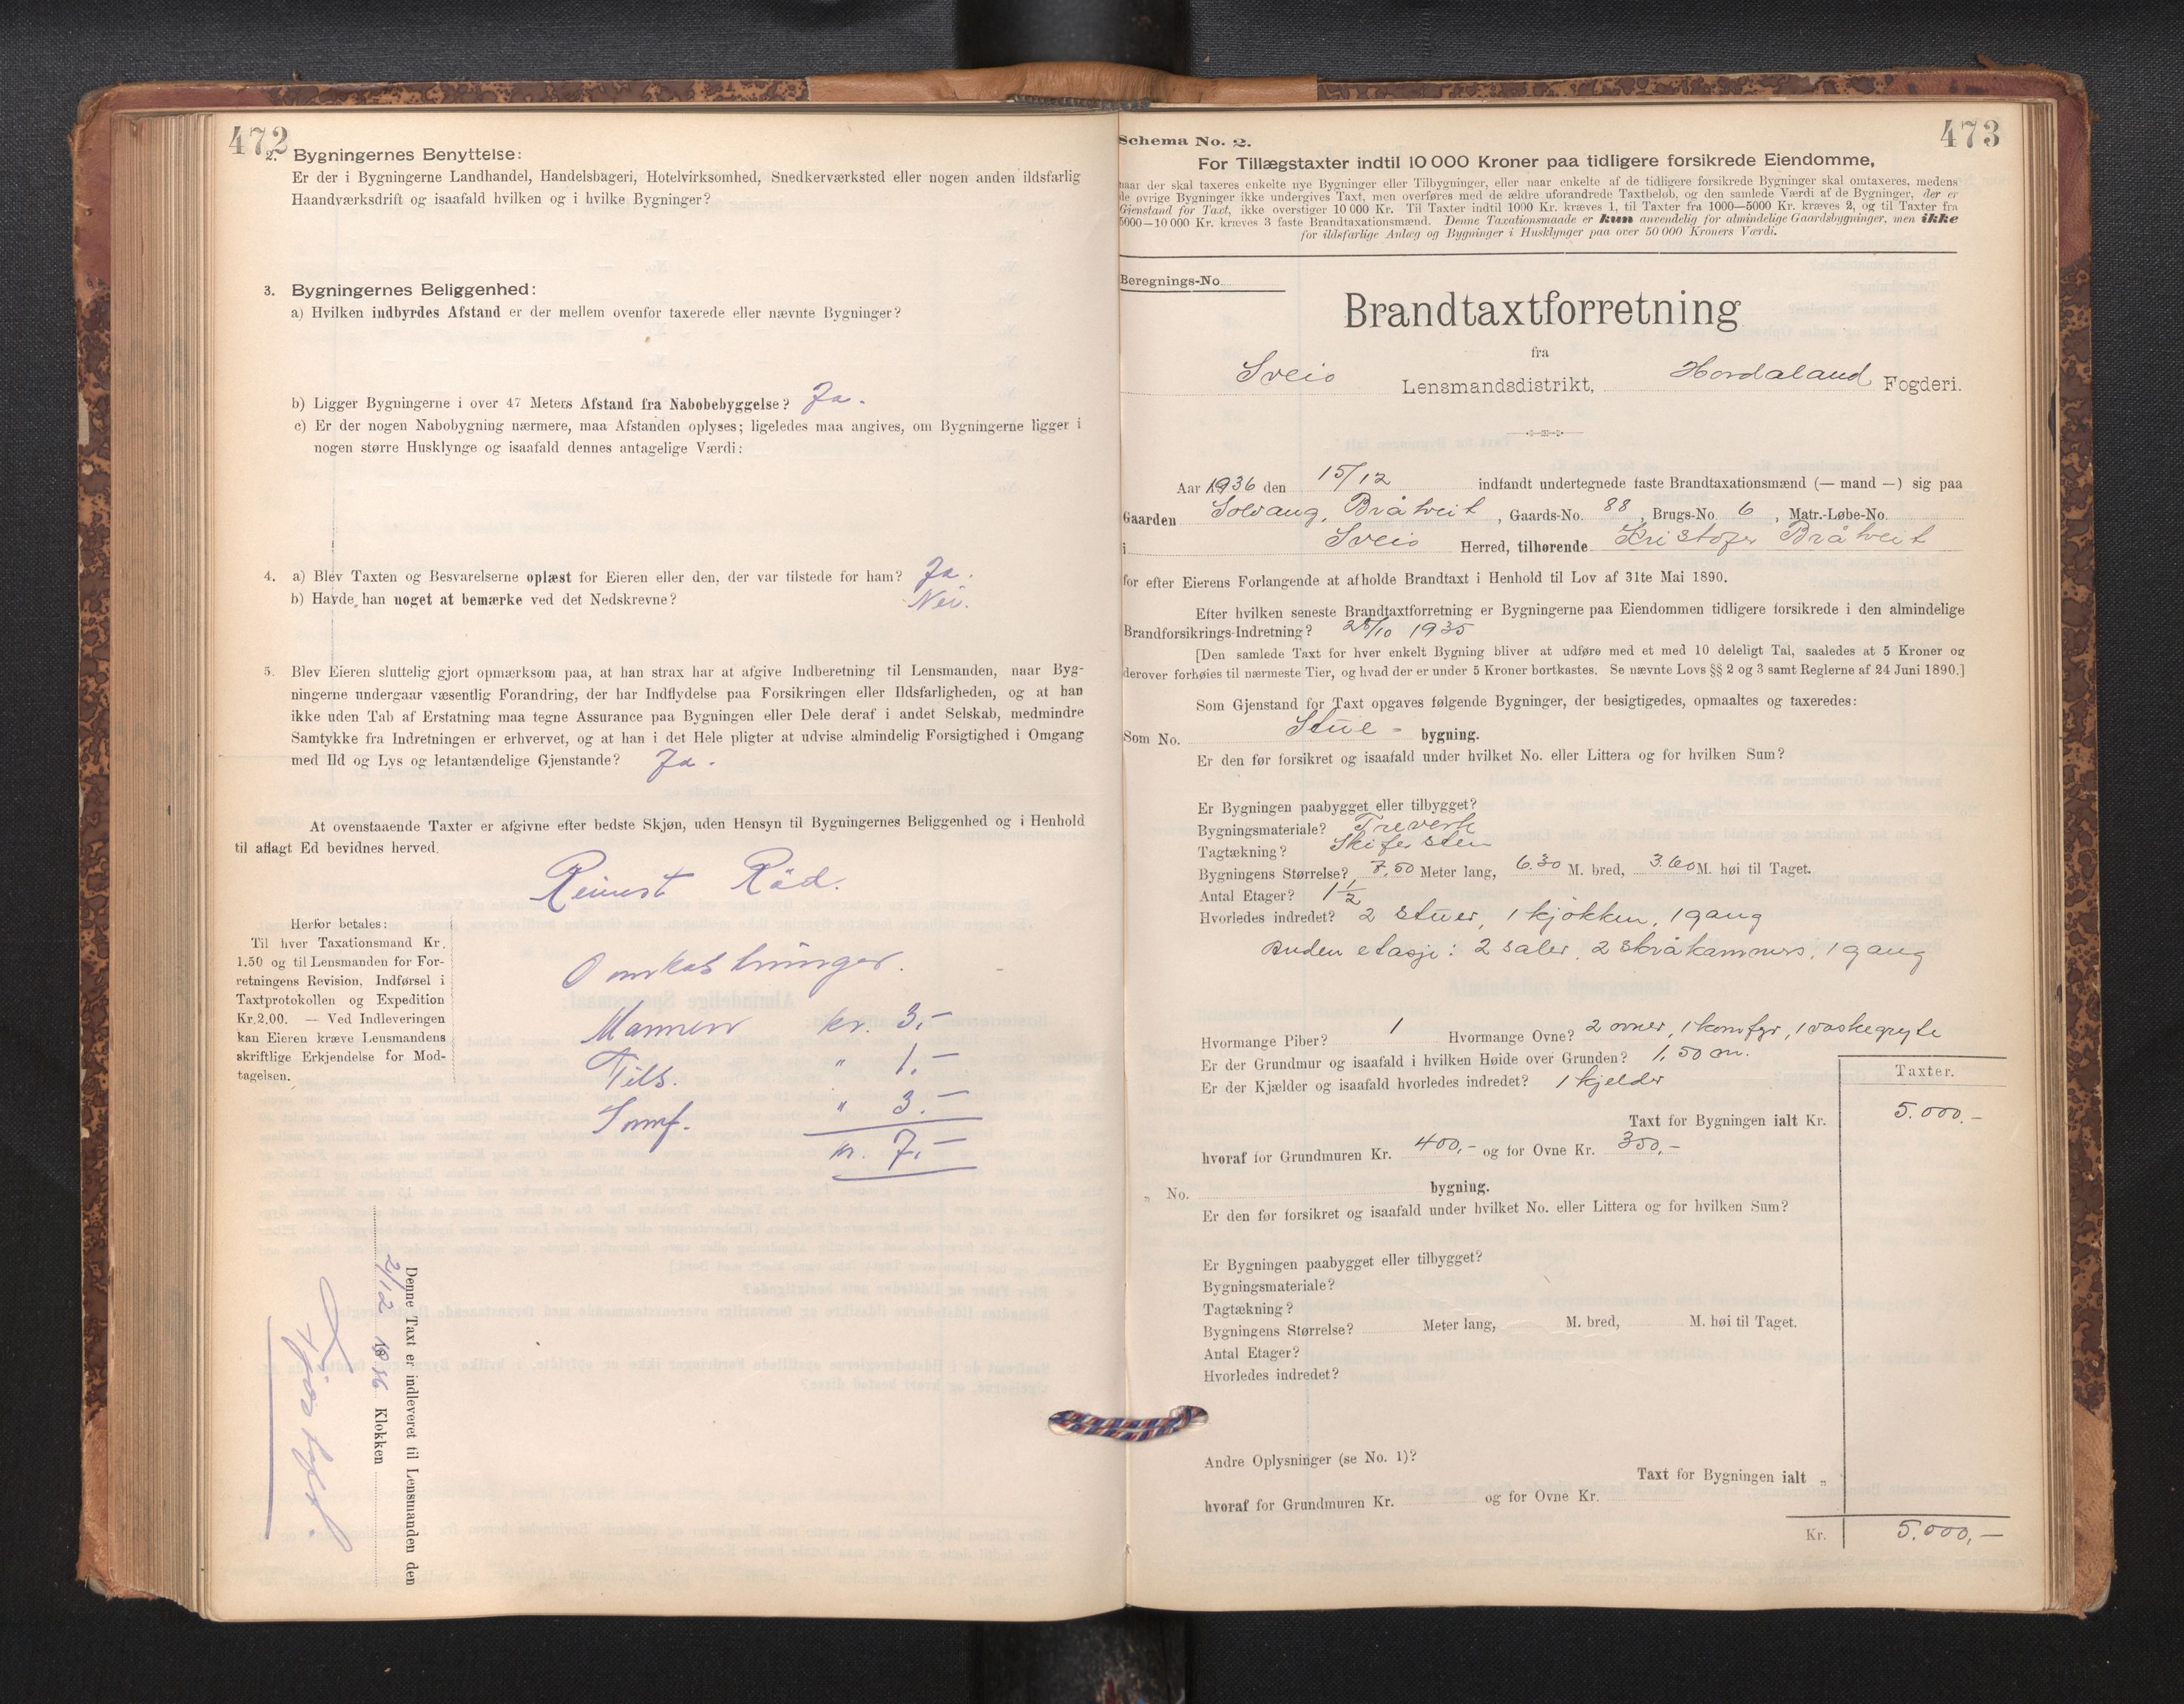 472
2. Bygningernes Benyttelse:
Er der i Bygningerne Landhandel, Handelsbageri, Hotelvirksomhed, Snedkerværksted eller nogen anden ildsfarlig
Haandværksdrift og isaafald hvilken og i hvilke Bygninger?
3. Bygningernes Beliggenhed:
a) Hvilken indbyrdes Afstand er der mellem ovenfor taxerede eller nævnte Bygninger?
b) Ligger Bygningerne i over 47 Meters Afstand fra Nabobebyggelse? Ja.
c) Er der nogen Nabobygning nærmere, maa Afstanden oplyses; ligeledes maa angives, om Bygningerne ligger i
nogen større Husklynge og isaafald dennes antagelige Værdi:
4. a) Blev Taxten og Besvarelserne oplæst for Eieren eller den, der var tilstede for ham? Ja.
b) Havde han noget at bemærke ved det Nedskrevne? Nei.
5. Blev Eieren sluttelig gjort opmærksom paa, at han strax har at afgive Indberetning til Lensmanden, naar Byg-
ningerne undergaar væsentlig Forandring, der har Indflydelse paa Forsikringen eller Ildsfarligheden, og at han
ikke uden Tab af Erstatning maa tegne Assurance paa Bygningen eller Dele deraf i andet Selskab, medmindre
Samtykke fra Indretningen er erhvervet, og at han i det Hele pligter at udvise almindelig Forsigtighed i Omgang
med Ild og Lys og letantændelige Gjenstande? Ja.
At ovenstaaende Taxter er afgivne efter bedste Skjøn, uden Hensyn til Bygningernes Beliggenhed og i Henhold
til aflagt Ed bevidnes herved.
Reinert Räd.
Herfor betales:
Til hver Taxationsmand Kr.
1.50 og til Lensmanden for For-
retningens Revision, Indførsel i
Taxtprotokollen og Expedition
Kr. 2.00. — Ved Indleveringen
kan Eieren kræve Lensmandens
skriftlige Erkjendelse for Mod-
tagelsen.
Omkostninger.
Mannen kr. 3,—
Tils. " 1,—
" 3.—
kr. 7,—
Denne Taxt er indleveret til Lensmanden den
21/12 1936 Klokken
473
Schema No. 2.
For Tillægstaxter indtil 10 000 Kroner paa tidligere forsikrede Eiendomme,
naar der skal taxeres enkelte nye Bygninger eller Tilbygninger, eller naar enkelte af de tidligere forsikrede Bygninger skal omtaxeres, medens
de øvrige Bygninger ikke undergives Taxt, men overføres med de ældre uforandrede Taxtbeløb, og den samlede Værdi af de Bygninger, der er
Gjenstand for Taxt, ikke overstiger 10 000 Kr. Til Taxter indtil 1000 Kr. kræves 1, til Taxter fra 1000—5000 Kr. kræves 2, og til Taxter fra
5000—10 000 Kr. kræves 3 faste Brandtaxationsmænd. Denne Taxationsmaade er kun anvendelig for almindelige Gaardsbygninger, men ikke
for ildsfarlige Anlæg og Bygninger i Husklynger paa over 50 000 Kroners Værdi.
Beregnings-No.
Brandtaxtforretning
fra
Sveio Lensmandsdistrikt, Hordaland Fogderi.
Aar 1936 den 15/12 indfandt undertegnede faste Brandtaxationsmænd (— mand —) sig paa
Gaarden Solvang, Bråtveit, Gaards-No. 88, Brugs-No. 6, Matr.-Løbe-No.
i Sveio Herred, tilhørende Kristofer Bråtveit
for efter Eierens Forlangende at afholde Brandtaxt i Henhold til Lov af 31te Mai 1890.
Efter hvilken seneste Brandtaxtforretning er Bygningerne paa Eiendommen tidligere forsikrede i den almindelige
Brandforsikrings-Indretning? 28/10 1935
[Den samlede Taxt for hver enkelt Bygning bliver at udføre med et med 10 deleligt Tal, saaledes at 5 Kroner og
derover forhøies til nærmeste Tier, og hvad der er under 5 Kroner bortkastes. Se nævnte Lovs §§ 2 og 3 samt Reglerne af 24 Juni 1890.]
Som Gjenstand for Taxt opgaves følgende Bygninger, der besigtigedes, opmaaltes og taxeredes:
Som No. Stue - bygning.
Er den før forsikret og isaafald under hvilket No. eller Littera og for hvilken Sum?
Er Bygningen paabygget eller tilbygget?
Bygningsmateriale? Treverk
Tagtækning? Skifersten
Bygningens Størrelse? 7,50 Meter lang, 6.30 M. bred, 3.60 M. høi til Taget.
Antal Etager? 1 1/2
Hvorledes indredet? 2 stuer, 1 kjøkken, 1 gang
Anden etasje: 2 saler, 2 skråkammers, 1 gang
Hvormange Piber? 1 Hvormange Ovne? 2 ovner, 1 komfyr, 1 vaskegryte
Er der Grundmur og isaafald i hvilken Høide over Grunden? 1,50 m.
Er der Kjælder og isaafald hvorledes indredet? 1 kjelder
Taxter.
Taxt for Bygningen ialt Kr. 5.000.-
hvoraf for Grundmuren Kr. 400,- og for Ovne Kr. 350,-
„ No. bygning.
Er den før forsikret og isaafald under hvilket No. eller Littera og for hvilken Sum?
Er Bygningen paabygget eller tilbygget?
Bygningsmateriale?
Tagtækning?
Bygningens Størrelse? Meter lang, M. bred, M. høi til Taget.
Antal Etager?
Hvorledes indredet?
Andre Oplysninger (se No. 1)?
Taxt for Bygningen ialt „
hvoraf for Grundmuren Kr. og for Ovne Kr.
Kr. 5.000,-